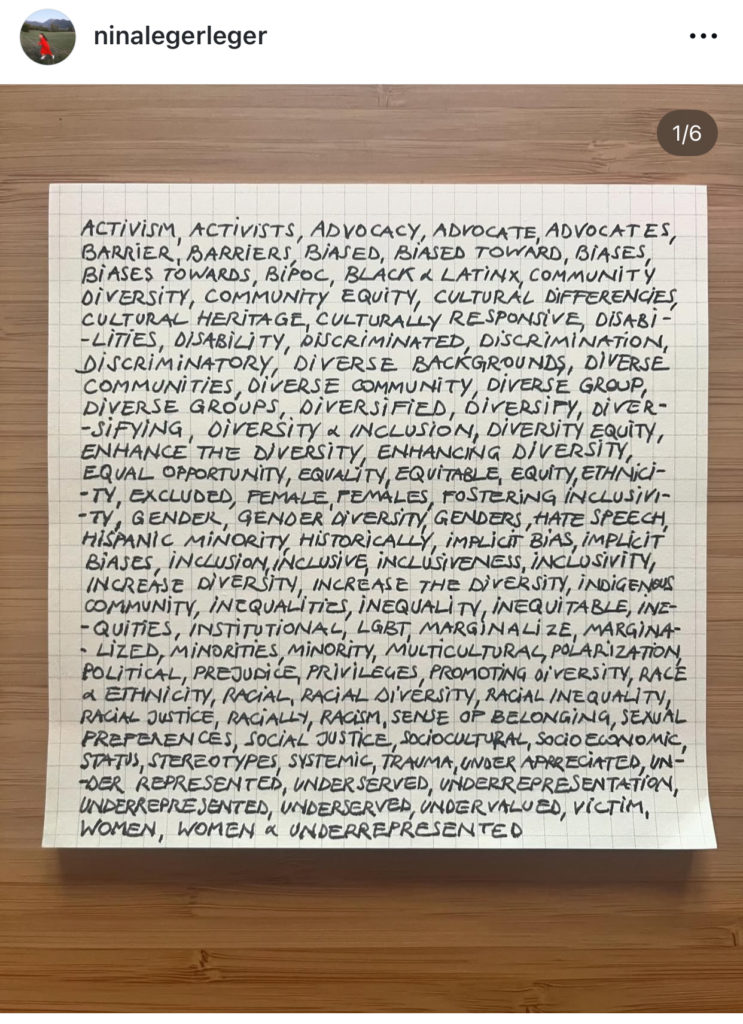 ninalegerleger
1/6
ACTIVISM, ACTIVISTS, ADVOCACY, ADVOCATE, ADVOCATES,
BARRIER, BARRIERS, BIASED, BIASED TOWARD, BIASES,
BIASES TOWARDS, BIPOC, BLACK & LATINX, COMMUNITY
DIVERSITY, COMMUNITY EQUITY, CULTURAL DIFFERENCIES,
CULTURAL HERITAGE, CULTURALLY RESPONSIVE, DISABI-
-LITIES, DISABILITY, DISCRIMINATED, DISCRIMINATION,
DISCRIMINATORY, DIVERSE BACKGROUNDS, DIVERSE
COMMUNITIES, DIVERSE COMMUNITY, DIVERSE GROUP,
DIVERSE GROUPS, DIVERSIFIED, DIVERSIFY, DIVER-
-SIFYING, DIVERSITY & INCLUSION, DIVERSITY EQUITY,
ENHANCE THE DIVERSITY, ENHANCING DIVERSITY,
EQUAL OPPORTUNITY, EQUALITY, EQUITABLE, EQUITY, ETHNICI-
-TY, EXCLUDED, FEMALE, FEMALES, FOSTERING INCLUSIVI-
-TY, GENDER, GENDER DIVERSITY, GENDERS, HATE SPEECH,
HISPANIC MINORITY, HISTORICALLY, IMPLICIT BIAS, IMPLICIT
BIASES, INCLUSION, INCLUSIVE, INCLUSIVENESS, INCLUSIVITY,
INCREASE DIVERSITY, INCREASE THE DIVERSITY, INDIGENOUS
COMMUNITY, INEQUALITIES, INEQUALITY, INEQUITABLE, INE-
-QUITIES, INSTITUTIONAL, LGBT, MARGINALIZE, MARGINA-
-LIZED, MINORITIES, MINORITY, MULTICULTURAL, POLARIZATION,
POLITICAL, PREJUDICE, PRIVILEGES, PROMOTING DIVERSITY, RACE
& ETHNICITY, RACIAL, RACIAL DIVERSITY, RACIAL INEQUALITY,
RACIAL JUSTICE, RACIALLY, RACISM, SENSE OF BELONGING, SEXUAL
PREFERENCES, SOCIAL JUSTICE, SOCIOCULTURAL, SOCIOECONOMIC,
STATUS, STEREOTYPES, SYSTEMIC, TRAUMA, UNDER APPRECIATED, UN-
-DER REPRESENTED, UNDERSERVED, UNDERREPRESENTATION,
UNDERREPRESENTED, UNDERSERVED, UNDERVALUED, VICTIM,
WOMEN, WOMEN & UNDERREPRESENTED